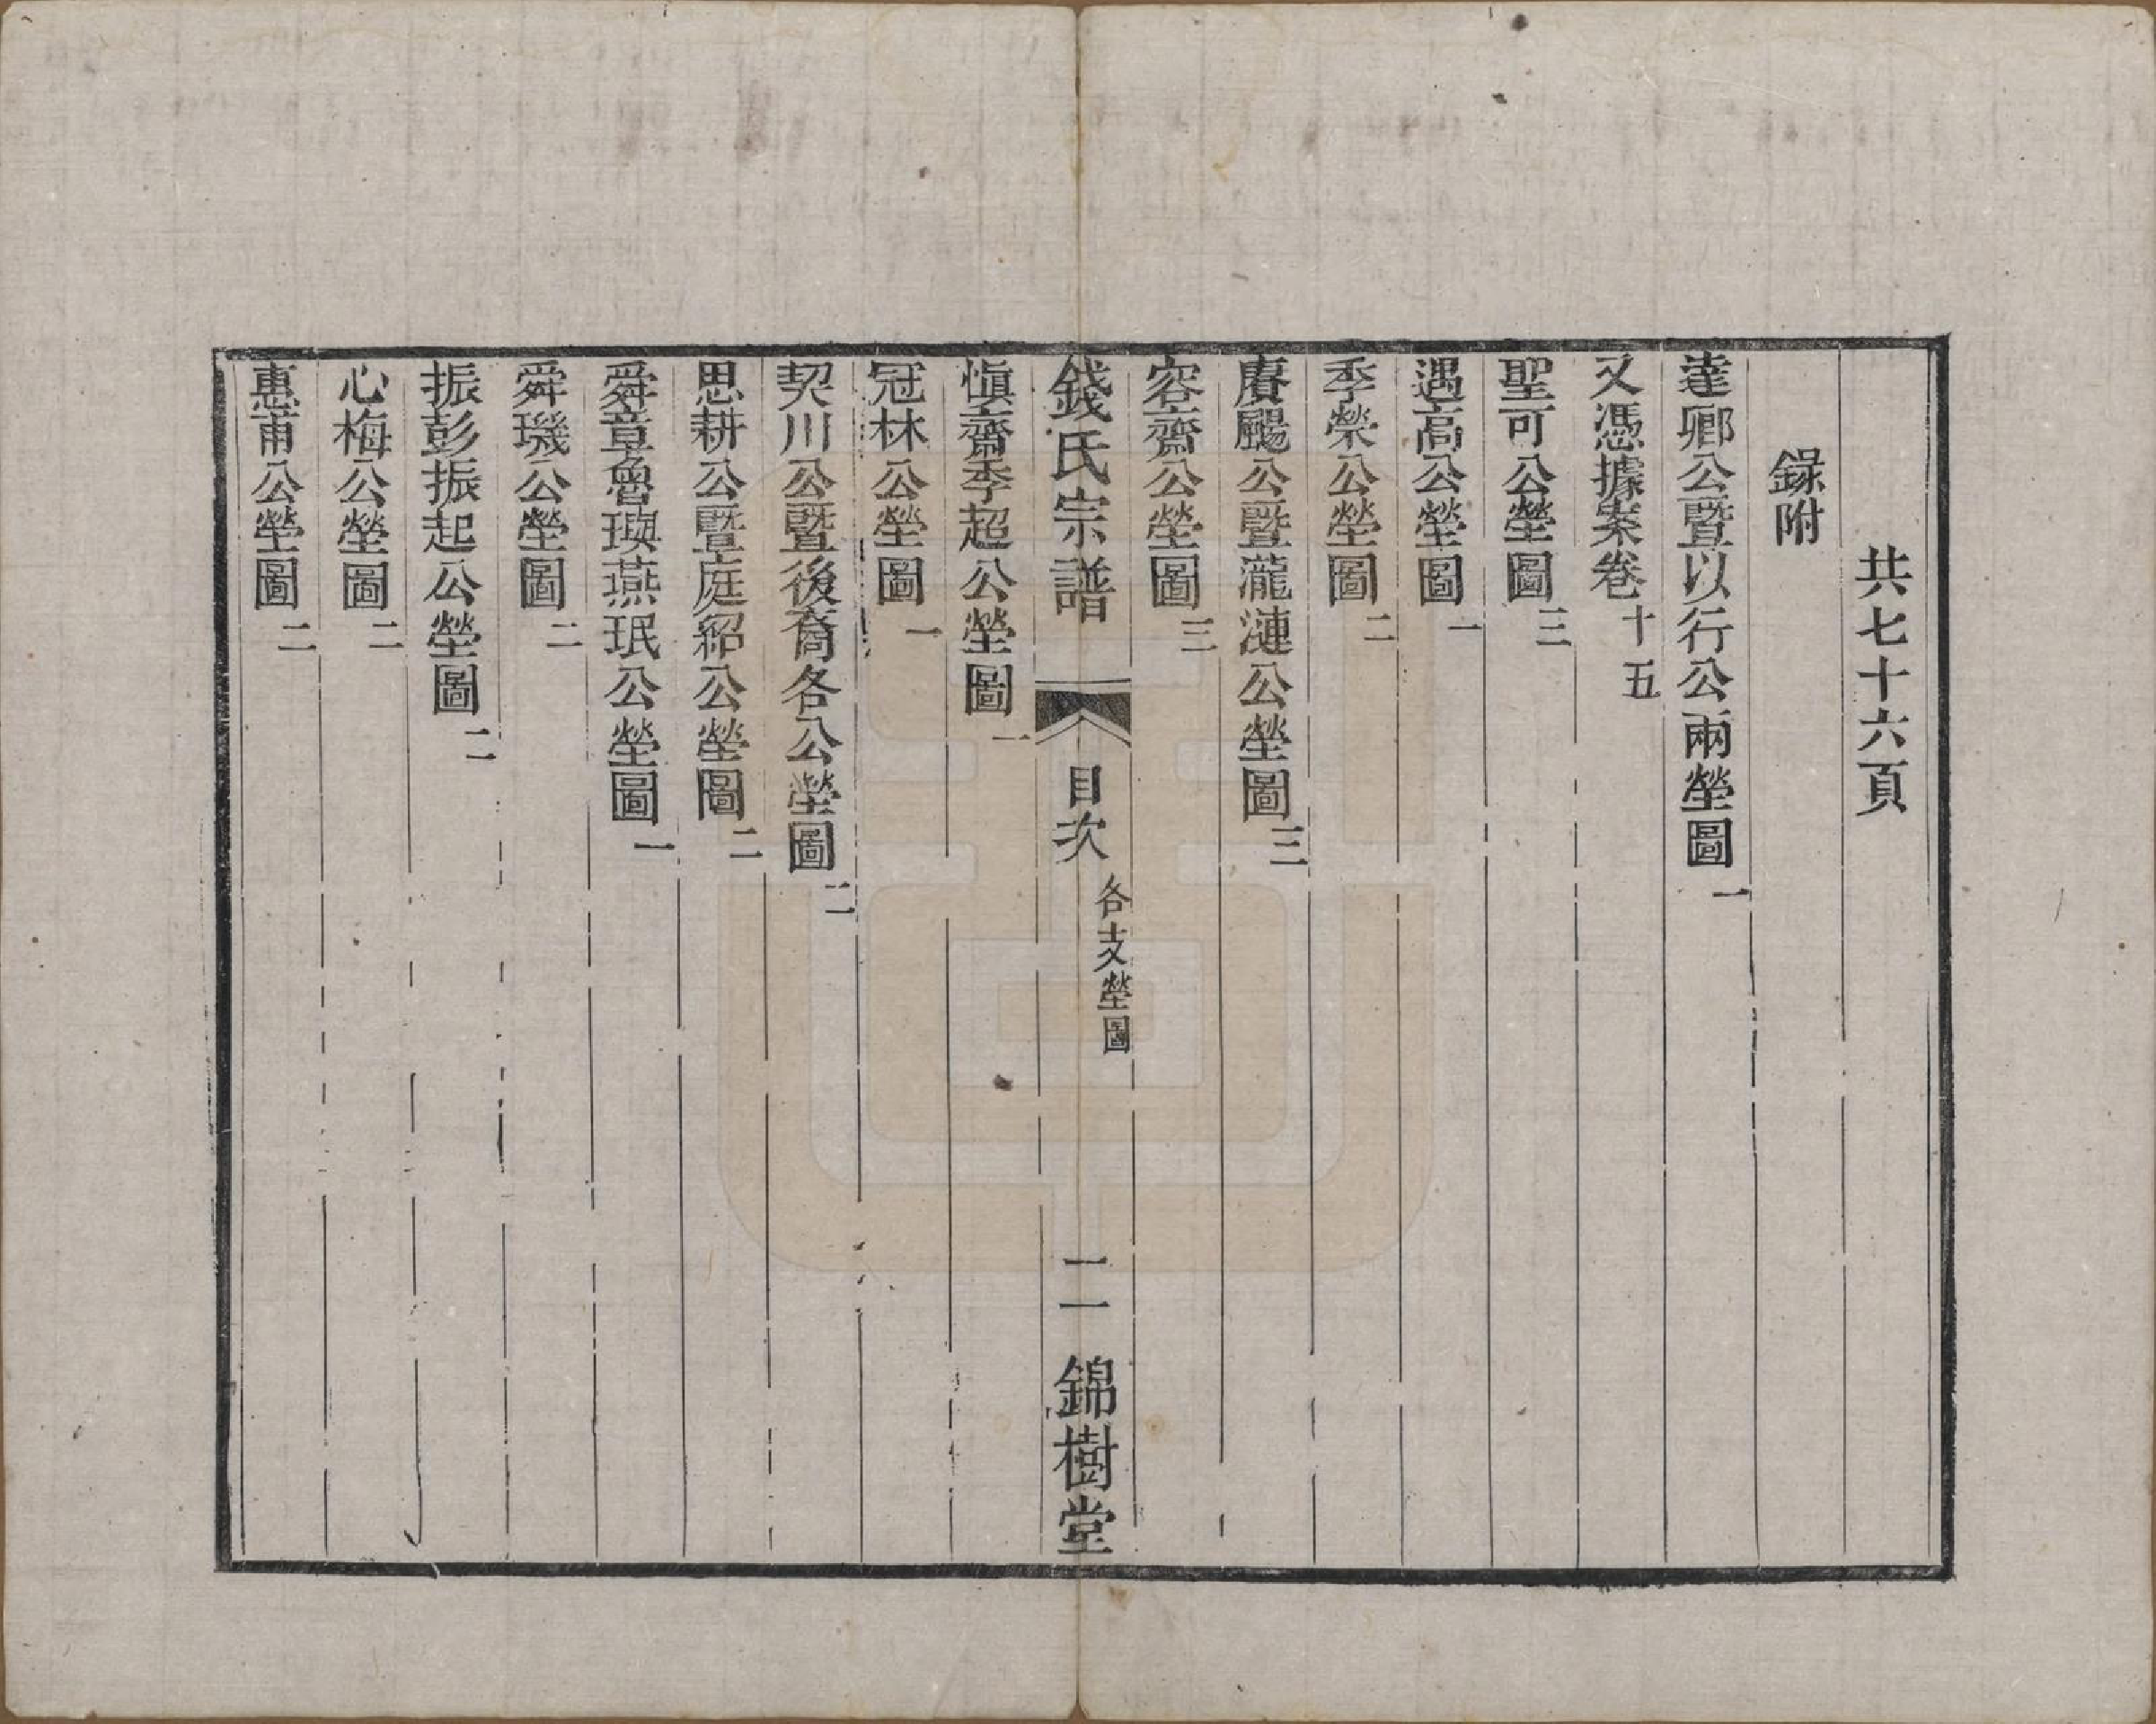 共七十六頁
錄附
達卿公暨以行公兩塋圖一
又憑據案卷十五
聖可公塋圖三
遇高公塋圖一
季榮公塋圖二
賡颺公暨瀧漣公塋圖三
容齋公塋圖三
錢氏宗譜
目次
各支塋圖
二
錦樹堂
愼齋季超公塋圖一
冠林公塋圖一
契川公暨後裔各公塋圖二
思耕公暨庭紹公塋圖二
舜章魯瑛燕珉公塋圖一
舜璣公塋圖二
振彭振起公塋圖二
心梅公塋圖二
惠甫公塋圖二